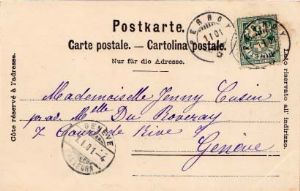 Postkarte.
Carte postale. — Cartolina postale.
Nur für die Adresse.
Côté réservé à l'adresse.
Lato riservato all' indirizzo.
Mademoiselle Jenny Cusin
près Mlle Du Roveray
7 Cours de Rive
Genève
GENÈVE